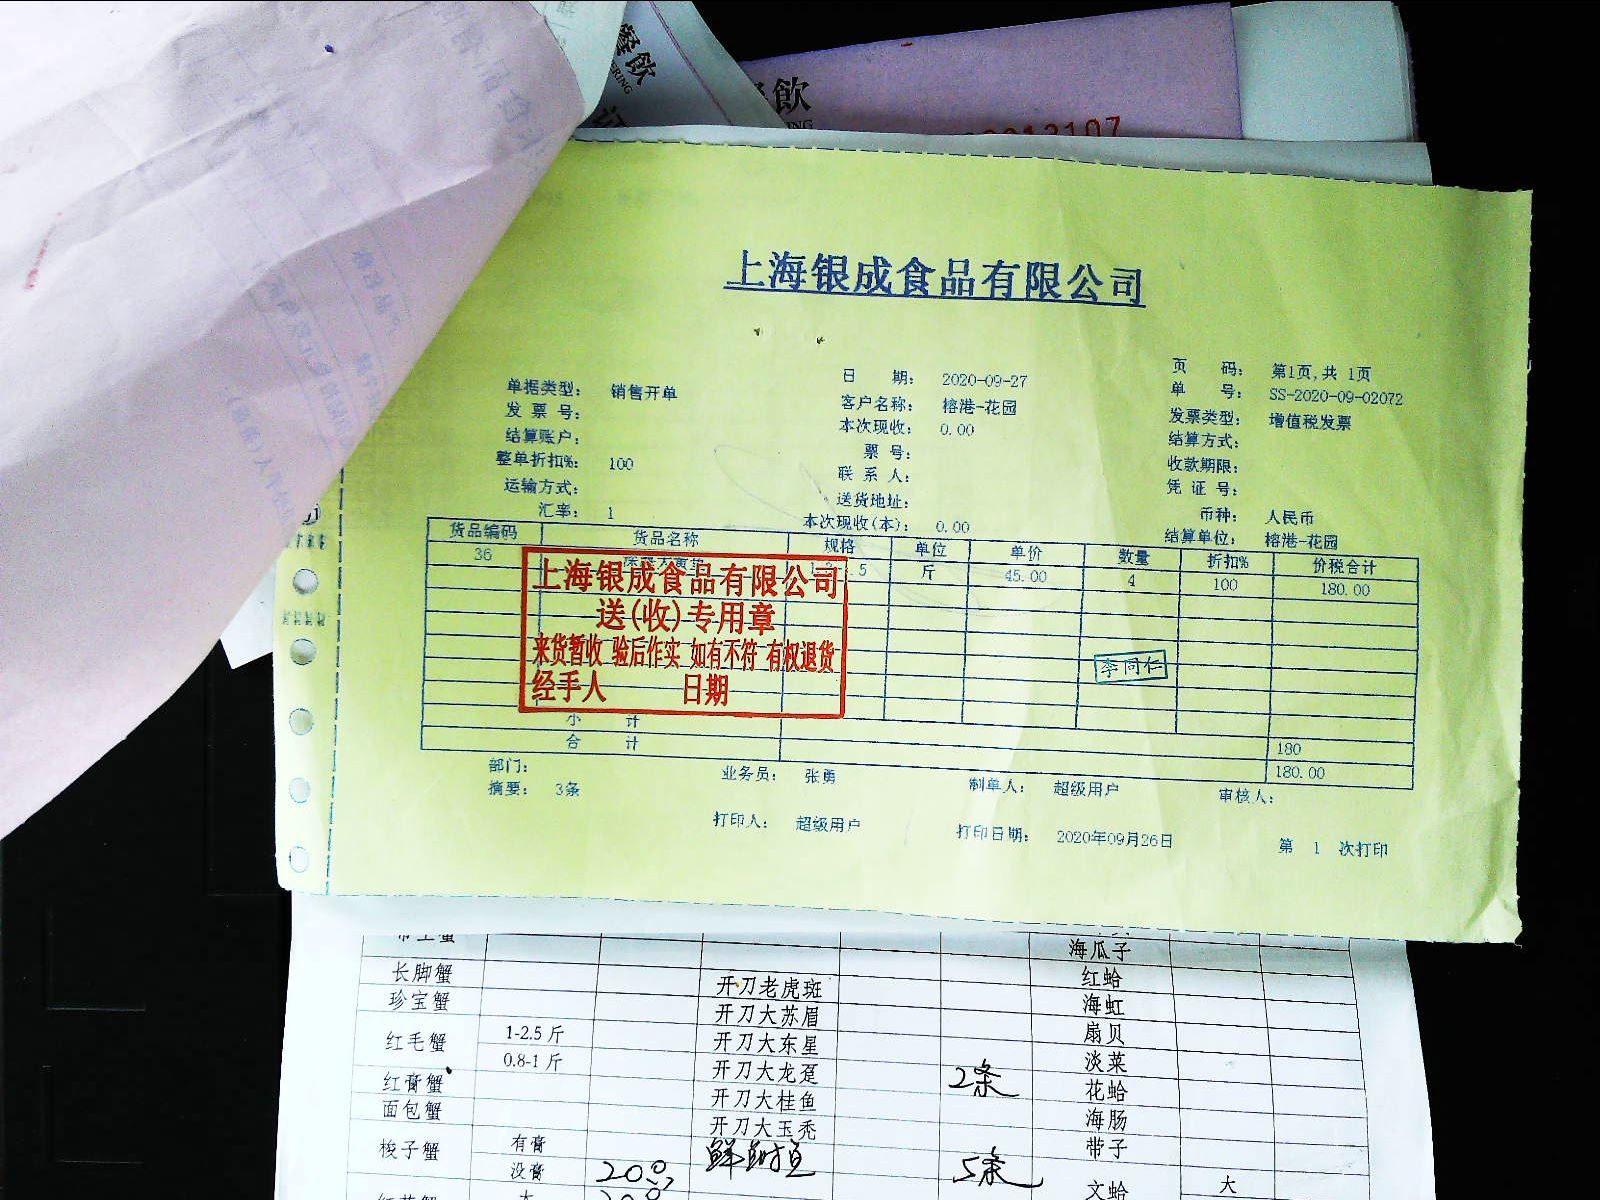 餐飲
餐飲
上海银成食品有限公司
单据类型: 销售开单 日 期: 2020-09-27 页 码: 第1页,共 1页
发 票 号: 客户名称: 榕港-花园 单 号: SS-2020-09-02072
结算账户: 本次现收: 0.00 发票类型: 增值税发票
整单折扣%: 100 票 号: 结算方式:
运输方式: 联 系 人: 收款期限:
汇率: 1 送货地址: 凭 证 号:
本次现收(本): 0.00 币种: 人民币
结算单位: 榕港-花园
货品编码 货品名称 规格 单位 单价 数量 折扣% 价税合计
36 斤 45.00 4 100 180.00
上海银成食品有限公司
送(收)专用章
来货暂收 验后作实 如有不符 有权退货
经手人 日期
李同仁
小 计 180
合 计 180.00
部门: 业务员: 张勇 制单人: 超级用户 审核人:
摘要: 3条
打印人: 超级用户 打印日期: 2020年09月26日 第 1 次打印
海瓜子
长脚蟹 开刀老虎斑 红蛤
珍宝蟹 开刀大苏眉 海虹
红毛蟹 1-2.5 斤 开刀大东星 扇贝
0.8-1 斤 开刀大龙趸 2条 淡菜
红膏蟹 开刀大桂鱼 花蛤
面包蟹 开刀大玉秃 海肠
梭子蟹 有膏 5条 带子
没膏
文蛤 大